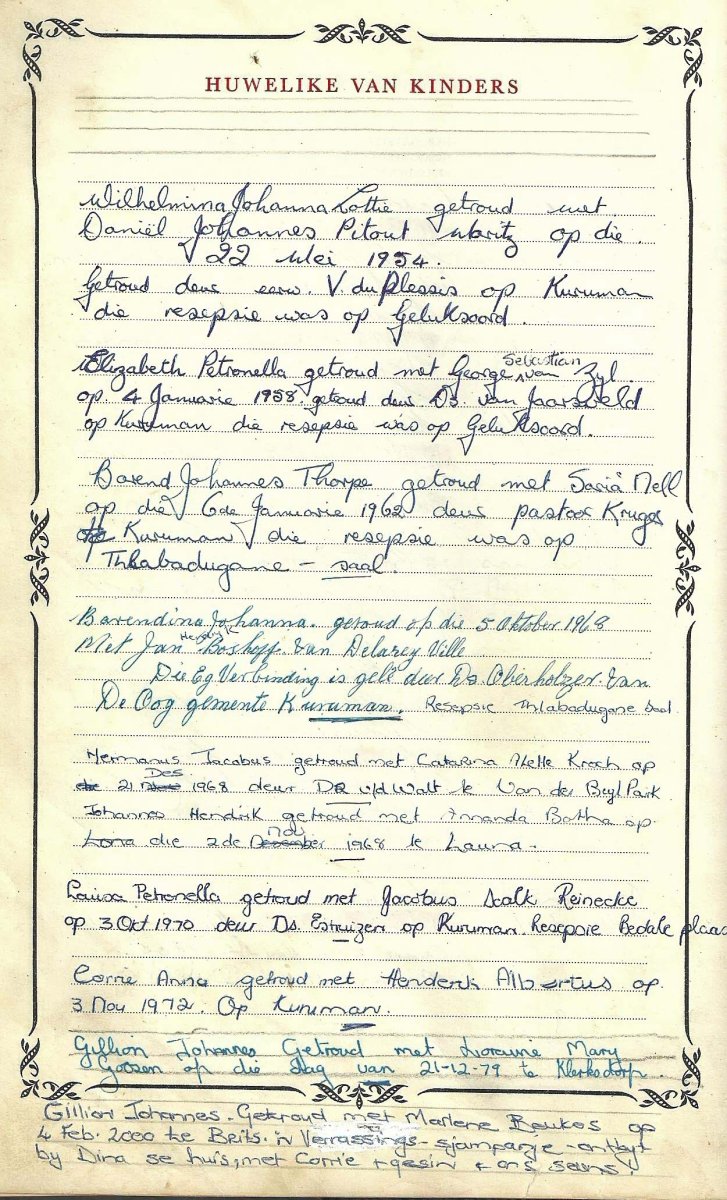 HUWELIKE VAN KINDERS
Wilhelmina Johanna Lottie getroud met
Daniël Johannes Pitout Maritz op die
22 Mei 1954.
Getroud deur eerw. V. du Plessis op Kuruman
die resepsie was op Geluksoord.
Elizabeth Petronella getroud met George Sebastian van Zyl
op 4 Januarie 1958 getroud deur Ds. van Jaarsveld
op Kuruman die resepsie was op Geluksoord.
Barend Johannes Thorpe getroud met Saria Nell
op die 6de Januarie 1962 deur pastoor Kruger
op Kuruman die resepsie was op
Thlabadugane - saal.
Barendina Johanna. getroud op die 5 Oktober 1968
Met Jan Hendrik Boshoff. van Delarey Ville
Die Eg Verbinding is gelê deur Ds. Oberholzer. van
De Oog gemente Kuruman. Resepsie Thlabadugane Saal.
Hermanus Jacobus getroud met Catarina Kroch op
21 Des 1968 deur DR v/d Walt te Van der Beyl Park
Johannes Hendrik getroud met Amanda Botha op
die 2de Nov 1968 te Launa.
Louisa Petronella getroud met Jacobus Scalk Reinecke
op 3 Okt 1970 deur Ds. Estruizen op Kuruman Resepsie Bedale plaas
Corrie Anna getroud met Henderik Albertus op.
3 Nov 1972. Op Kuruman.
Gillion Johannes Getroud met Loraine Mary
Gotsen op die dag van 21-12-79 te Klerksdorp.
Gillion Johannes. Getroud met Marlene Beukes op
4 Feb. 2000 te Brits. 'n Verrassings-sjampanje-ontbyt
by Dina se huis, met Corrie + gesin + ons seuns!